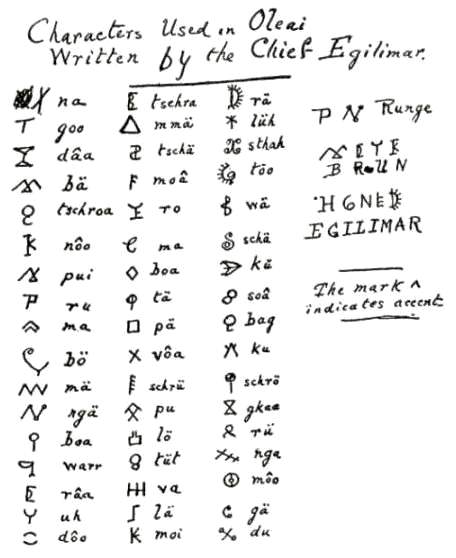 Characters Used in Oleai
Written by the Chief Egilimar.
na
goo
dâa
bä
tschroa
nôo
pui
ru
ma
bö
mä
ngä
boa
warr
râa
uh
dôo
tschra
mmä
tschä
moâ
ro
ma
boa
tä
pä
vôa
schrü
pu
lö
tüt
va
lä
moi
rä
lüh
sthah
töo
wä
schä
kü
soâ
bag
ku
schrö
gkaa
rü
nga
môo
gä
du
Runge
BROUN
EGILIMAR
The mark ^
indicates accent